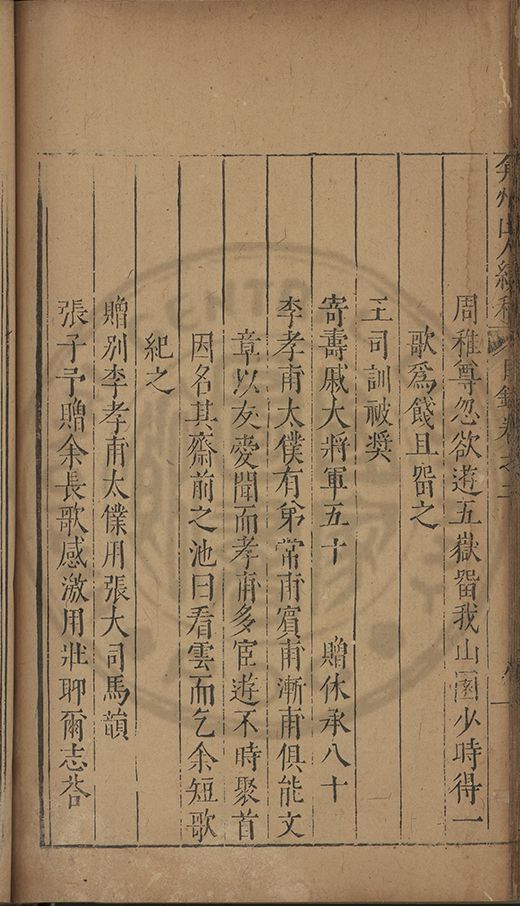 弇州山人續稿 目錄卷之二
周稚尊忽欲遊五嶽畱我山園少時得一
歌爲餞且畱之
王司訓被奬
寄壽戚大將軍五十　贈休承八十
李孝甫太僕有弟常甫賓甫漸甫俱能文
章以友愛聞而孝甫多宦遊不時聚首
因名其齋前之池曰看雲而乞余短歌
紀之
贈别李孝甫太僕用張大司馬韻
張子予贈余長歌感激用壯聊爾志荅